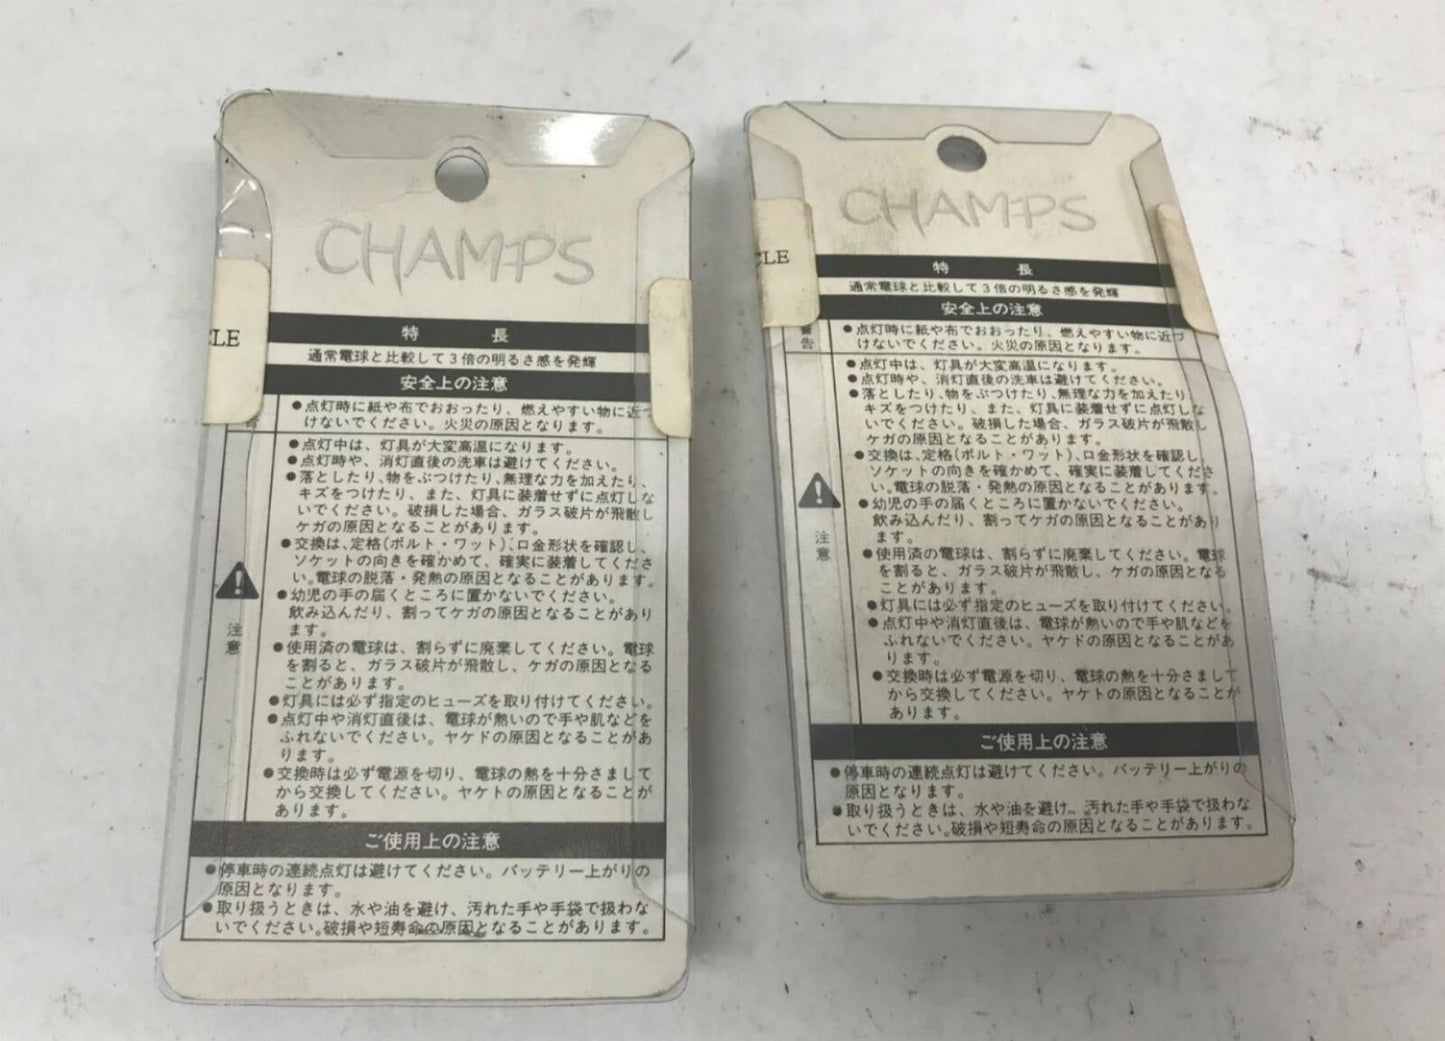 CHAMPS
CLE
特長
通常電球と比較して3倍の明るさ感を発輝
安全上の注意
告
●点灯時に紙や布でおおったり、燃えやすい物に近づ
けないでください。火災の原因となります。
注意
●点灯中は、灯具が大変高温になります。
●点灯時や、消灯直後の洗車は避けてください。
●落としたり、物をぶつけたり、無理な力を加えたり、
キズをつけたり、また、灯具に装着せずに点灯しな
いでください。破損した場合、ガラス破片が飛散し
ケガの原因となることがあります。
●交換は、定格(ボルト・ワット)、口金形状を確認し、
ソケットの向きを確かめて、確実に装着してくださ
い。電球の脱落・発熱の原因となることがあります。
●幼児の手の届くところに置かないでください。
飲み込んだり、割ってケガの原因となることがあり
ます。
●使用済の電球は、割らずに廃棄してください。電球
を割ると、ガラス破片が飛散し、ケガの原因となる
ことがあります。
●灯具には必ず指定のヒューズを取り付けてください。
●点灯中や消灯直後は、電球が熱いので手や肌などを
ふれないでください。ヤケドの原因となることがあ
ります。
●交換時は必ず電源を切り、電球の熱を十分さまして
から交換してください。ヤケトの原因となることが
あります。
ご使用上の注意
●停車時の連続点灯は避けてください。バッテリー上がりの
原因となります。
●取り扱うときは、水や油を避け、汚れた手や手袋で扱わな
いでください。破損や短寿命の原因となることがあります。
CHAMPS
CLE
特長
通常電球と比較して3倍の明るさ感を発輝
安全上の注意
警告
●点灯時に紙や布でおおったり、燃えやすい物に近づ
けないでください。火災の原因となります。
注意
●点灯中は、灯具が大変高温になります。
●点灯時や、消灯直後の洗車は避けてください。
●落としたり、物をぶつけたり、無理な力を加えたり、
キズをつけたり、また、灯具に装着せずに点灯しな
いでください。破損した場合、ガラス破片が飛散し
ケガの原因となることがあります。
●交換は、定格(ボルト・ワット)、口金形状を確認し、
ソケットの向きを確かめて、確実に装着してくださ
い。電球の脱落・発熱の原因となることがあります。
●幼児の手の届くところに置かないでください。
飲み込んだり、割ってケガの原因となることがあり
ます。
●使用済の電球は、割らずに廃棄してください。電球
を割ると、ガラス破片が飛散し、ケガの原因となる
ことがあります。
●灯具には必ず指定のヒューズを取り付けてください。
●点灯中や消灯直後は、電球が熱いので手や肌などを
ふれないでください。ヤケドの原因となることがあ
ります。
●交換時は必ず電源を切り、電球の熱を十分さまして
から交換してください。ヤケトの原因となることが
あります。
ご使用上の注意
●停車時の連続点灯は避けてください。バッテリー上がりの
原因となります。
●取り扱うときは、水や油を避け、汚れた手や手袋で扱わな
いでください。破損や短寿命の原因となることがあります。